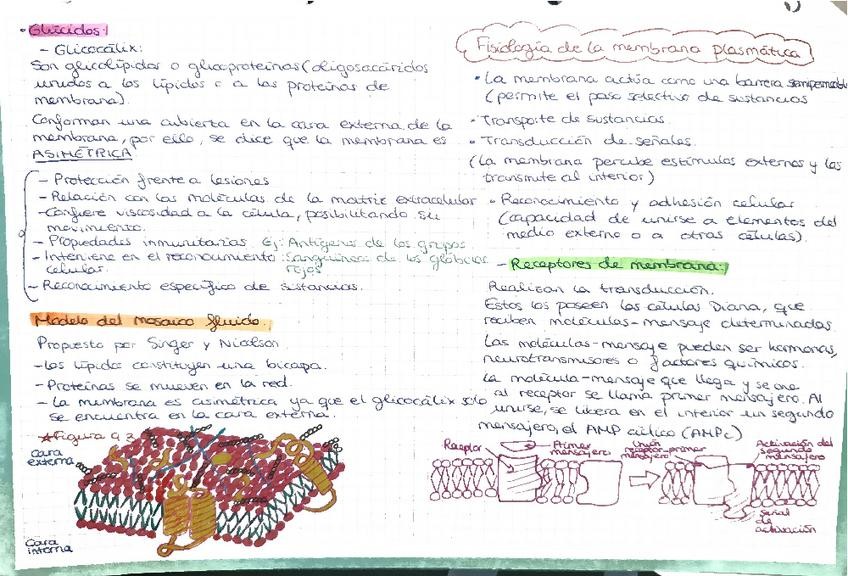 • Glúcidos:
- Glicocálix:
Son glicolípidos o glucoproteínas (oligosacáridos
unidos a los lípidos o a las proteínas de
membrana).
Conforman una cubierta en la cara externa de la
membrana, por ello, se dice que la membrana es
ASIMÉTRICA
- Protección frente a lesiones
- Relación con las moléculas de la matriz extracelular
- Confiere viscosidad a la célula, posibilitando su
movimiento.
- Propiedades inmunitarias. Ej: Antígenos de los grupos
- Interviene en el reconocimiento sanguíneos de los glóbulos
celular. rojos
- Reconocimiento específico de sustancias.
Modelo del mosaico fluido.
Propuesto por Singer y Nicolson
- Los lípidos constituyen una bicapa.
- Proteínas se mueven en la red.
- La membrana es asimétrica ya que el glicocálix solo
se encuentra en la cara externa.
★Figura 9.3
Cara
externa
Cara
interna
Fisiología de la membrana plasmática
• La membrana actúa como una barrera semipermeable
(permite el paso selectivo de sustancias
• Transporte de sustancias.
• Transducción de señales.
(La membrana percibe estímulos externos y los
transmite al interior)
• Reconocimiento y adhesión celular
(capacidad de unirse a elementos del
medio externo o a otras células).
- Receptores de membrana:
Realizan la transducción.
Estos los poseen las células Diana, que
reciben moléculas-mensaje determinadas
Las moléculas-mensaje pueden ser hormonas,
neurotransmisores o factores químicos.
La molécula-mensaje que llega y se une
al receptor se llama primer mensajero. Al
unirse, se libera en el interior un segundo
mensajero, el AMP cíclico (AMPc)
Receptor
Primer
mensajero
Unión
receptor-primer
mensajero
Activación del
segundo
mensajero
Señal
de
activación